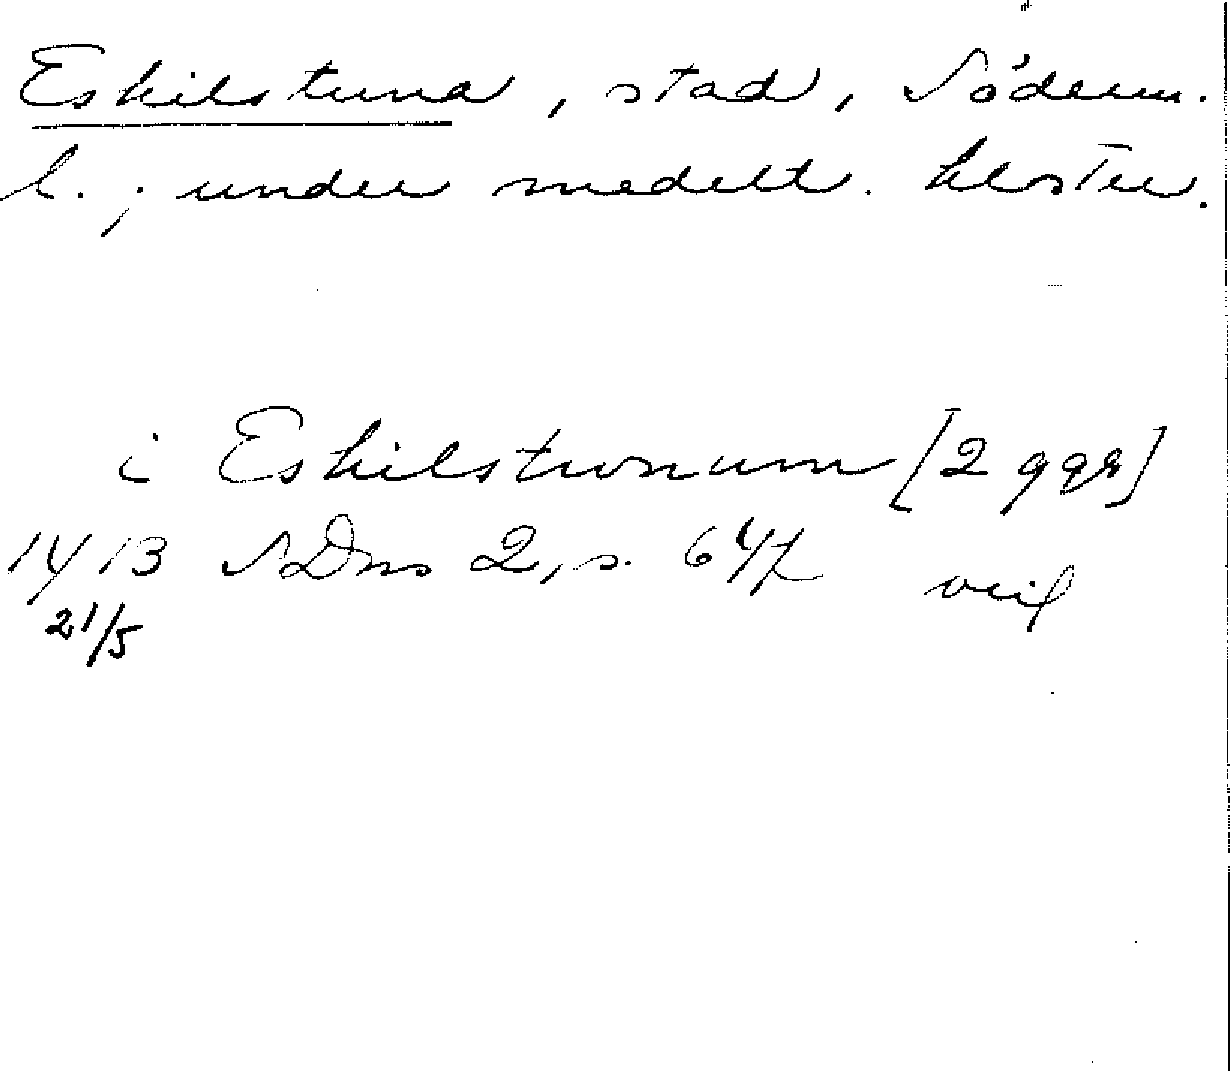 Eskilstuna, stad, Söderm.
l.; under medelt. kloster.
i Eskilstwnum [2 ggr]
1413 SDns 2, s. 647 orig
21/5